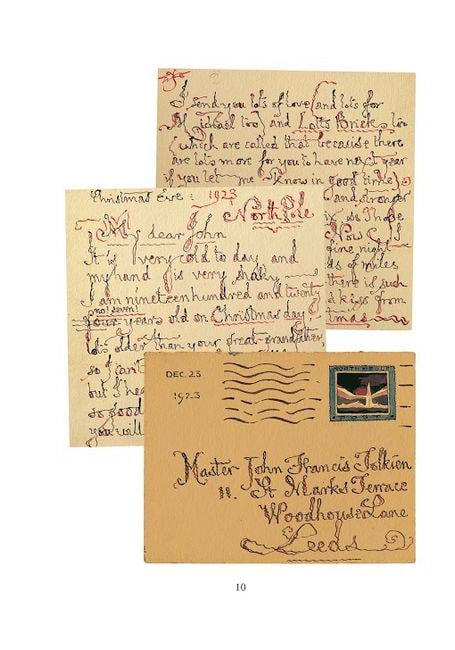 I send you lots of love (and lots for
Michael too) and Lotts Bricks too
(which are called that because there
are lots more for you to have next year
if you let me know in good time)
and stronger
Now I
night
of miles
there is such
a kiss from
Christmas Eve : 1923
North Pole
My dear John
It is very cold to day and
my hand is very shaky
I am nineteen hundred and twenty
no! seven!
four years old on Christmas day
lots older than your great-grandfather,
so I can't
but I hea
so good
you will
DEC. 23
1923
Master John Francis Tolkien
11. St Marks Terrace
Woodhouse Lane
Leeds
10